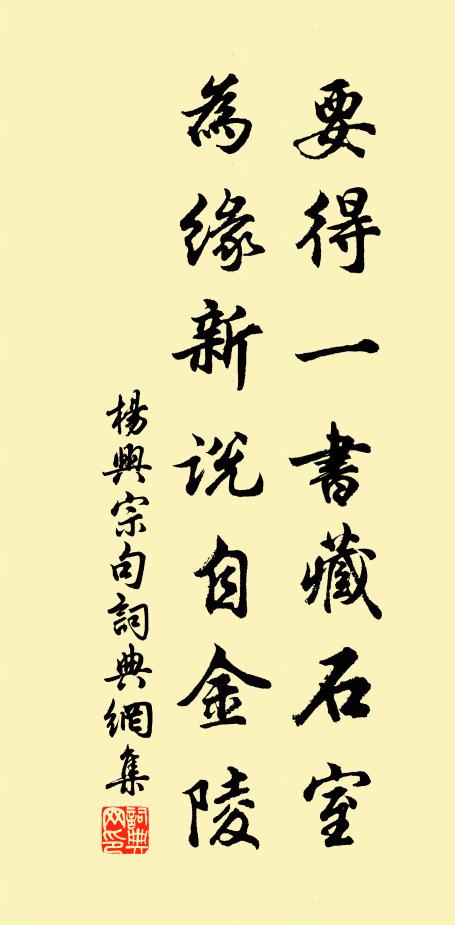 要得一書藏石室
為緣新說自金陵
楊興宗句詞典網集
詞典網印